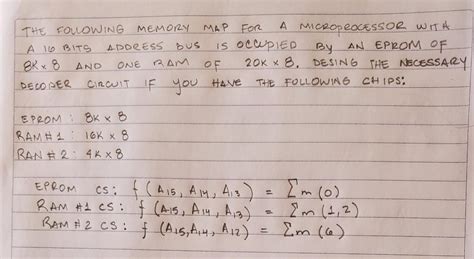 THE FOLLOWING MEMORY MAP FOR A MICROPROCESSOR WITH
A 16 BITS ADDRESS BUS IS OCCUPIED BY AN EPROM OF
8K x 8 AND ONE RAM OF 20K x 8. DESING THE NECESSARY
DECODER CIRCUIT IF YOU HAVE THE FOLLOWING CHIPS:
EPROM : 8K x 8
RAM # 1 : 16K x 8
RAN # 2 : 4K x 8
EPROM CS: f (A15, A14, A13) = Σm (0)
RAM #1 CS: f (A15, A14, A13) = Σm (1,2)
RAM #2 CS: f (A15, A14, A12) = Σm (6)